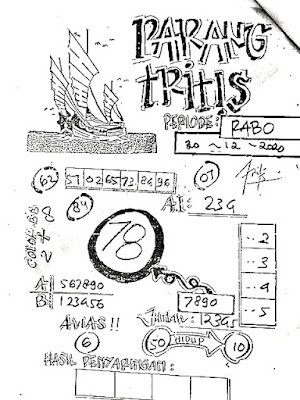 PARANG
TRITIS
PERIODE: RABO
30 ~ 12 ~ 2020
62 57 02 65 73 84 96 07
84 A.I: 239
COLOK BB
2 + 8
78
..2
..3
..4
..5
A 567890
B 123456
7890
12345
AWAS!!
6 50 HIDUP 10
HASIL PENYARINGAN: